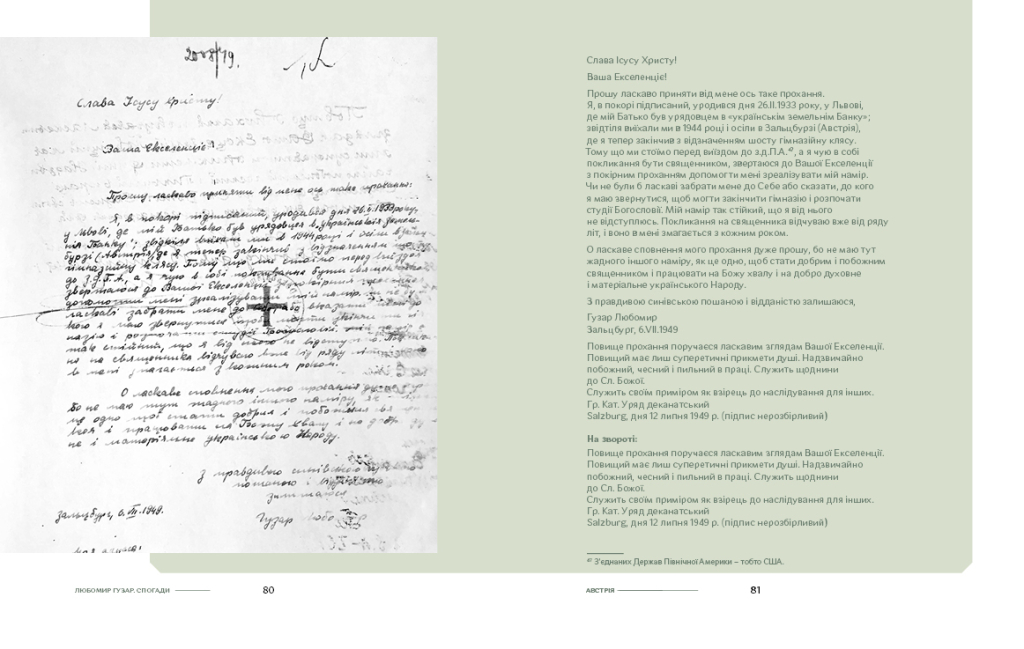 2008/19.
Слава Ісусу Христу!
Ваша Екселенціє!
Прошу ласкаво приняти від мене ось таке прохання:
Я, в покорі підписаний, уродився дня 26.II.1933 року,
у Львові, де мій Батько був урядовцем в „українськім земель-
нім Банку"; звідтіля виїхали ми в 1944 році і осіли в Зальц-
бурзі (Австрія), де я тепер закінчив з відзначенням шосту
гімназійну клясу. Тому що ми стоїмо перед виїздом
до З.Д.П.А., а я чую в собі покликання бути священиком
звертаюся до Вашої Екселенції з покірним проханням
допомогти мені зреалізувати мій намір. Чи не були б
ласкаві забрати мене до Себе або сказати, до
кого я маю звернутися, щоб могти закінчити гім-
назію і розпочати студії Богословії. Мій намір є
так стійкий, що я від нього не відступлю. Поклика-
ня на священника відчуваю вже від ряду літ, і воно
в мені змагається з кожним роком.
О ласкаве сповнення мого прохання дуже прошу,
бо не маю тут жадного іншого наміру, як
це одно, щоб стати добрим і побожним свя-
щеником і працювати на Божу хвалу і на добро духов-
не і матеріяльне українського Народу.
З правдивою синівською
пошаною і відданістю
залишаюся
Зальцбург, 6.VII.1949.
Гузар Любомир
ЛЮБОМИР ГУЗАР. СПОГАДИ
80
Слава Ісусу Христу!
Ваша Екселенціє!
Прошу ласкаво приняти від мене ось таке прохання.
Я, в покорі підписаний, уродився дня 26.II.1933 року, у Львові,
де мій Батько був урядовцем в «українськім земельнім Банку»;
звідтіля виїхали ми в 1944 році і осіли в Зальцбурзі (Австрія),
де я тепер закінчив з відзначенням шосту гімназійну клясу.
Тому що ми стоїмо перед виїздом до з.д.П.А.⁴², а я чую в собі
покликання бути священником, звертаюся до Вашої Екселенції
з покірним проханням допомогти мені зреалізувати мій намір.
Чи не були б ласкаві забрати мене до Себе або сказати, до кого
я маю звернутися, щоб могти закінчити гімназію і розпочати
студії Богословії. Мій намір так стійкий, що я від нього
не відступлюсь. Покликання на священника відчуваю вже від ряду
літ, і воно в мені змагається з кожним роком.
О ласкаве сповнення мого прохання дуже прошу, бо не маю тут
жадного іншого наміру, як це одно, щоб стати добрим і побожним
священником і працювати на Божу хвалу і на добро духовне
і матеріальне українського Народу.
З правдивою синівською пошаною і відданістю залишаюся,
Гузар Любомир
Зальцбург, 6.VII.1949
Повище прохання поручаєся ласкавим зглядам Вашої Екселенції.
Повищий має лиш суперетичні прикмети душі. Надзвичайно
побожний, чесний і пильний в праці. Служить щоднини
до Сл. Божої.
Служить своїм приміром як взірець до наслідування для інших.
Гр. Кат. Уряд деканатський
Salzburg, дня 12 липня 1949 р. (підпис нерозбірливий)
На звороті:
Повище прохання поручаєся ласкавим зглядам Вашої Екселенції.
Повищий має лиш суперетичні прикмети душі. Надзвичайно
побожний, чесний і пильний в праці. Служить щоднини
до Сл. Божої.
Служить своїм приміром як взірець до наслідування для інших.
Гр. Кат. Уряд деканатський
Salzburg, дня 12 липня 1949 р. (підпис нерозбірливий)
⁴² З'єднаних Держав Північної Америки – тобто США.
АВСТРІЯ
81